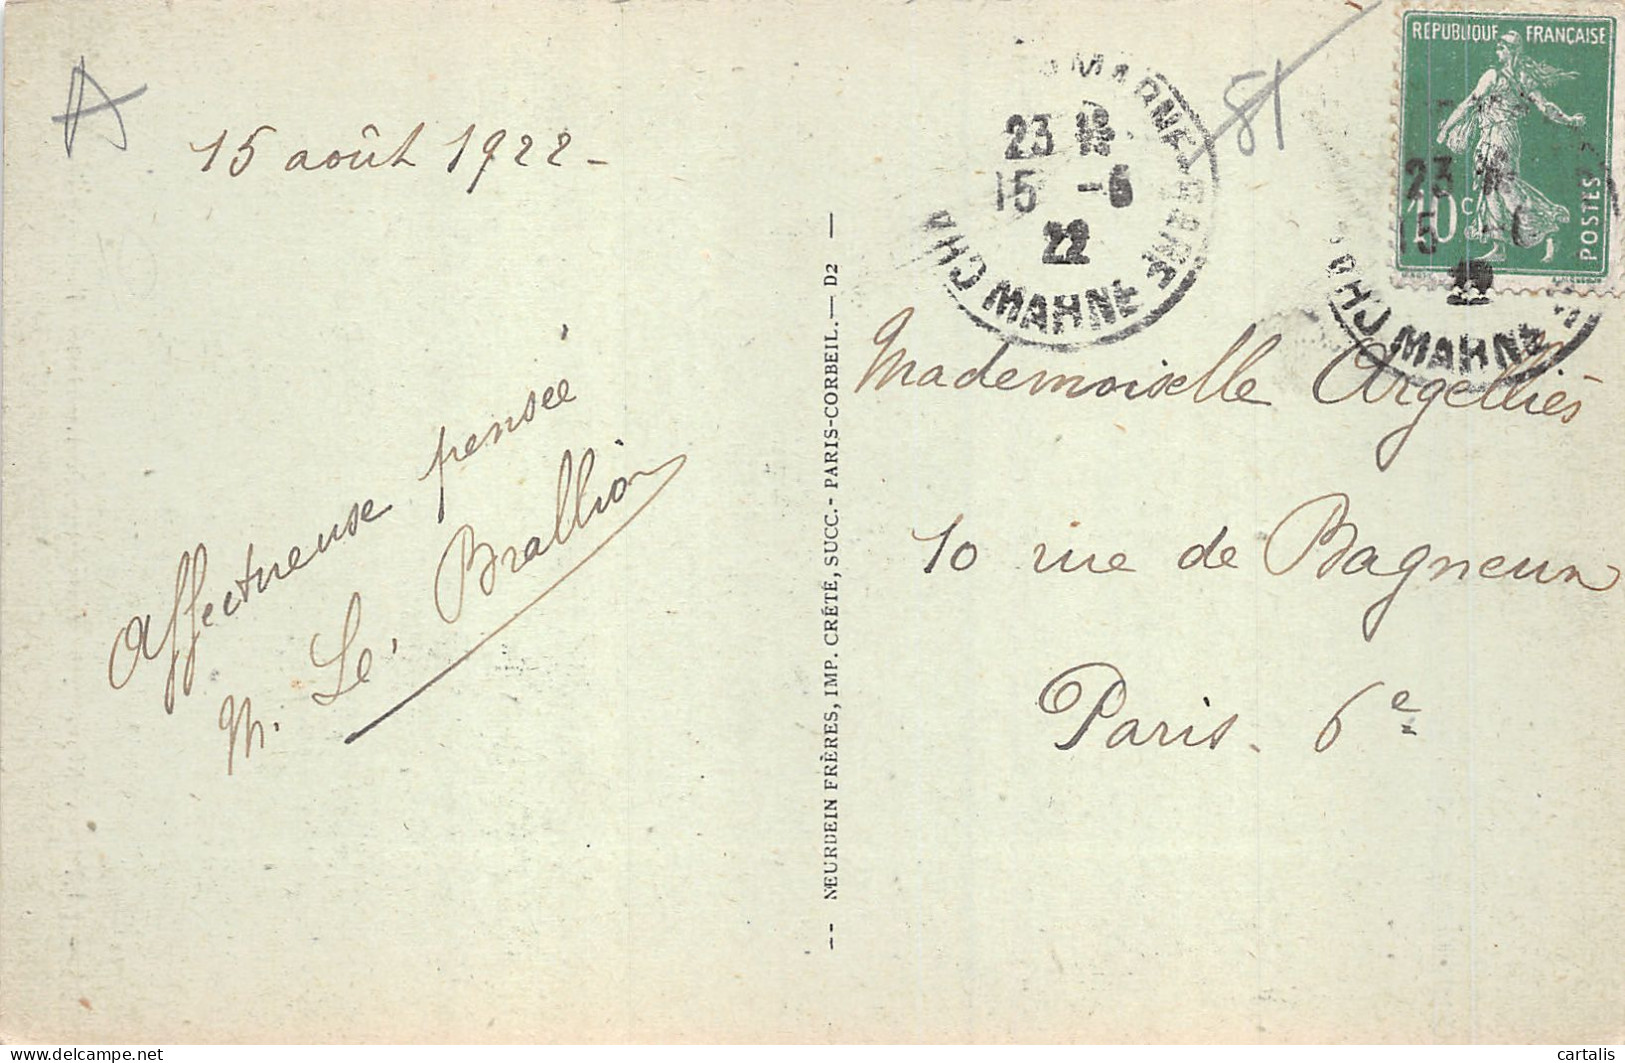 A
15 août 1922 -
Affectueuse pensée
M. Le Brallion
-- NEURDEIN FRÈRES, IMP. CRÉTÉ, SUCC.- PARIS-CORBEIL.— D2 —
MARNE
23
15 -
22
CHA MARNE
51
RÉPUBLIQUE FRANÇAISE
10 c
POSTES
23
15
CHA MARNE
Mademoiselle Argelliès
10 rue de Bagneux
Paris. 6e
delcampe.net
cartalis